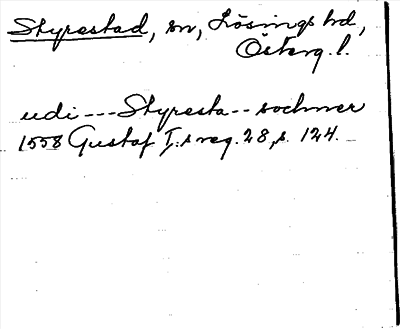 Styrestad, sn, Lösings hd,
Österg. l.
udi --- Styresta -- sochner
1558 Gustaf I:s reg. 28, s. 124.